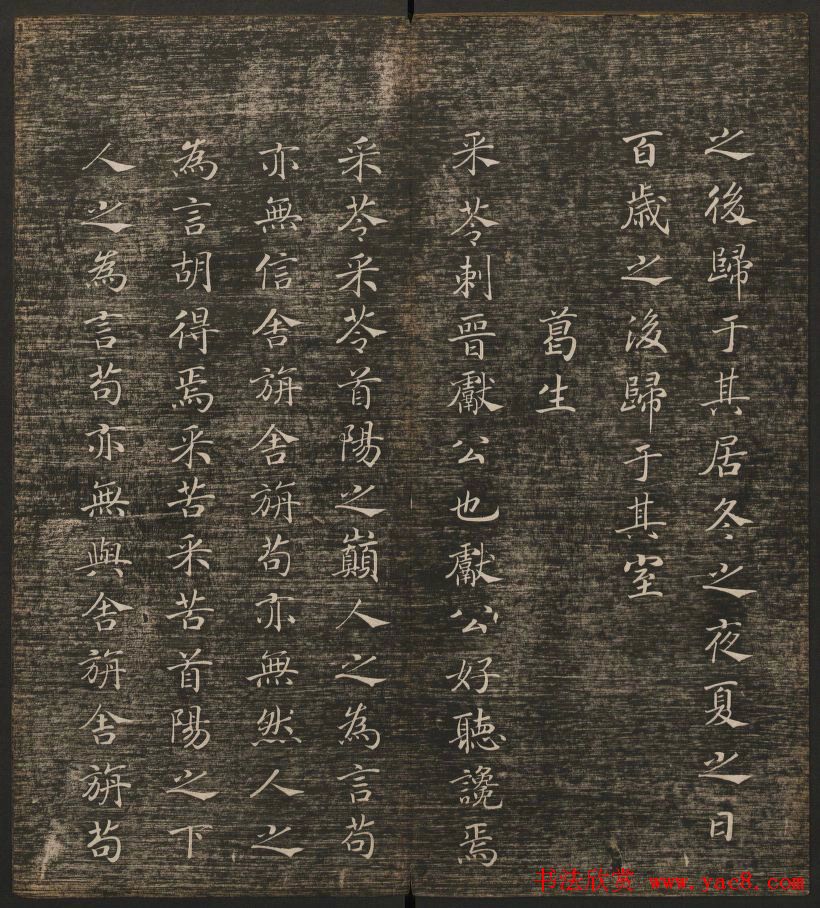 之後歸于其居冬之夜夏之日
百歲之後歸于其室
葛生
采苓刺晉獻公也獻公好聽讒焉
采苓采苓首陽之巔人之為言苟
亦無信舍旃舍旃苟亦無然人之
為言胡得焉采苦采苦首陽之下
人之為言苟亦無與舍旃舍旃苟
书法欣赏 www.yac8.com